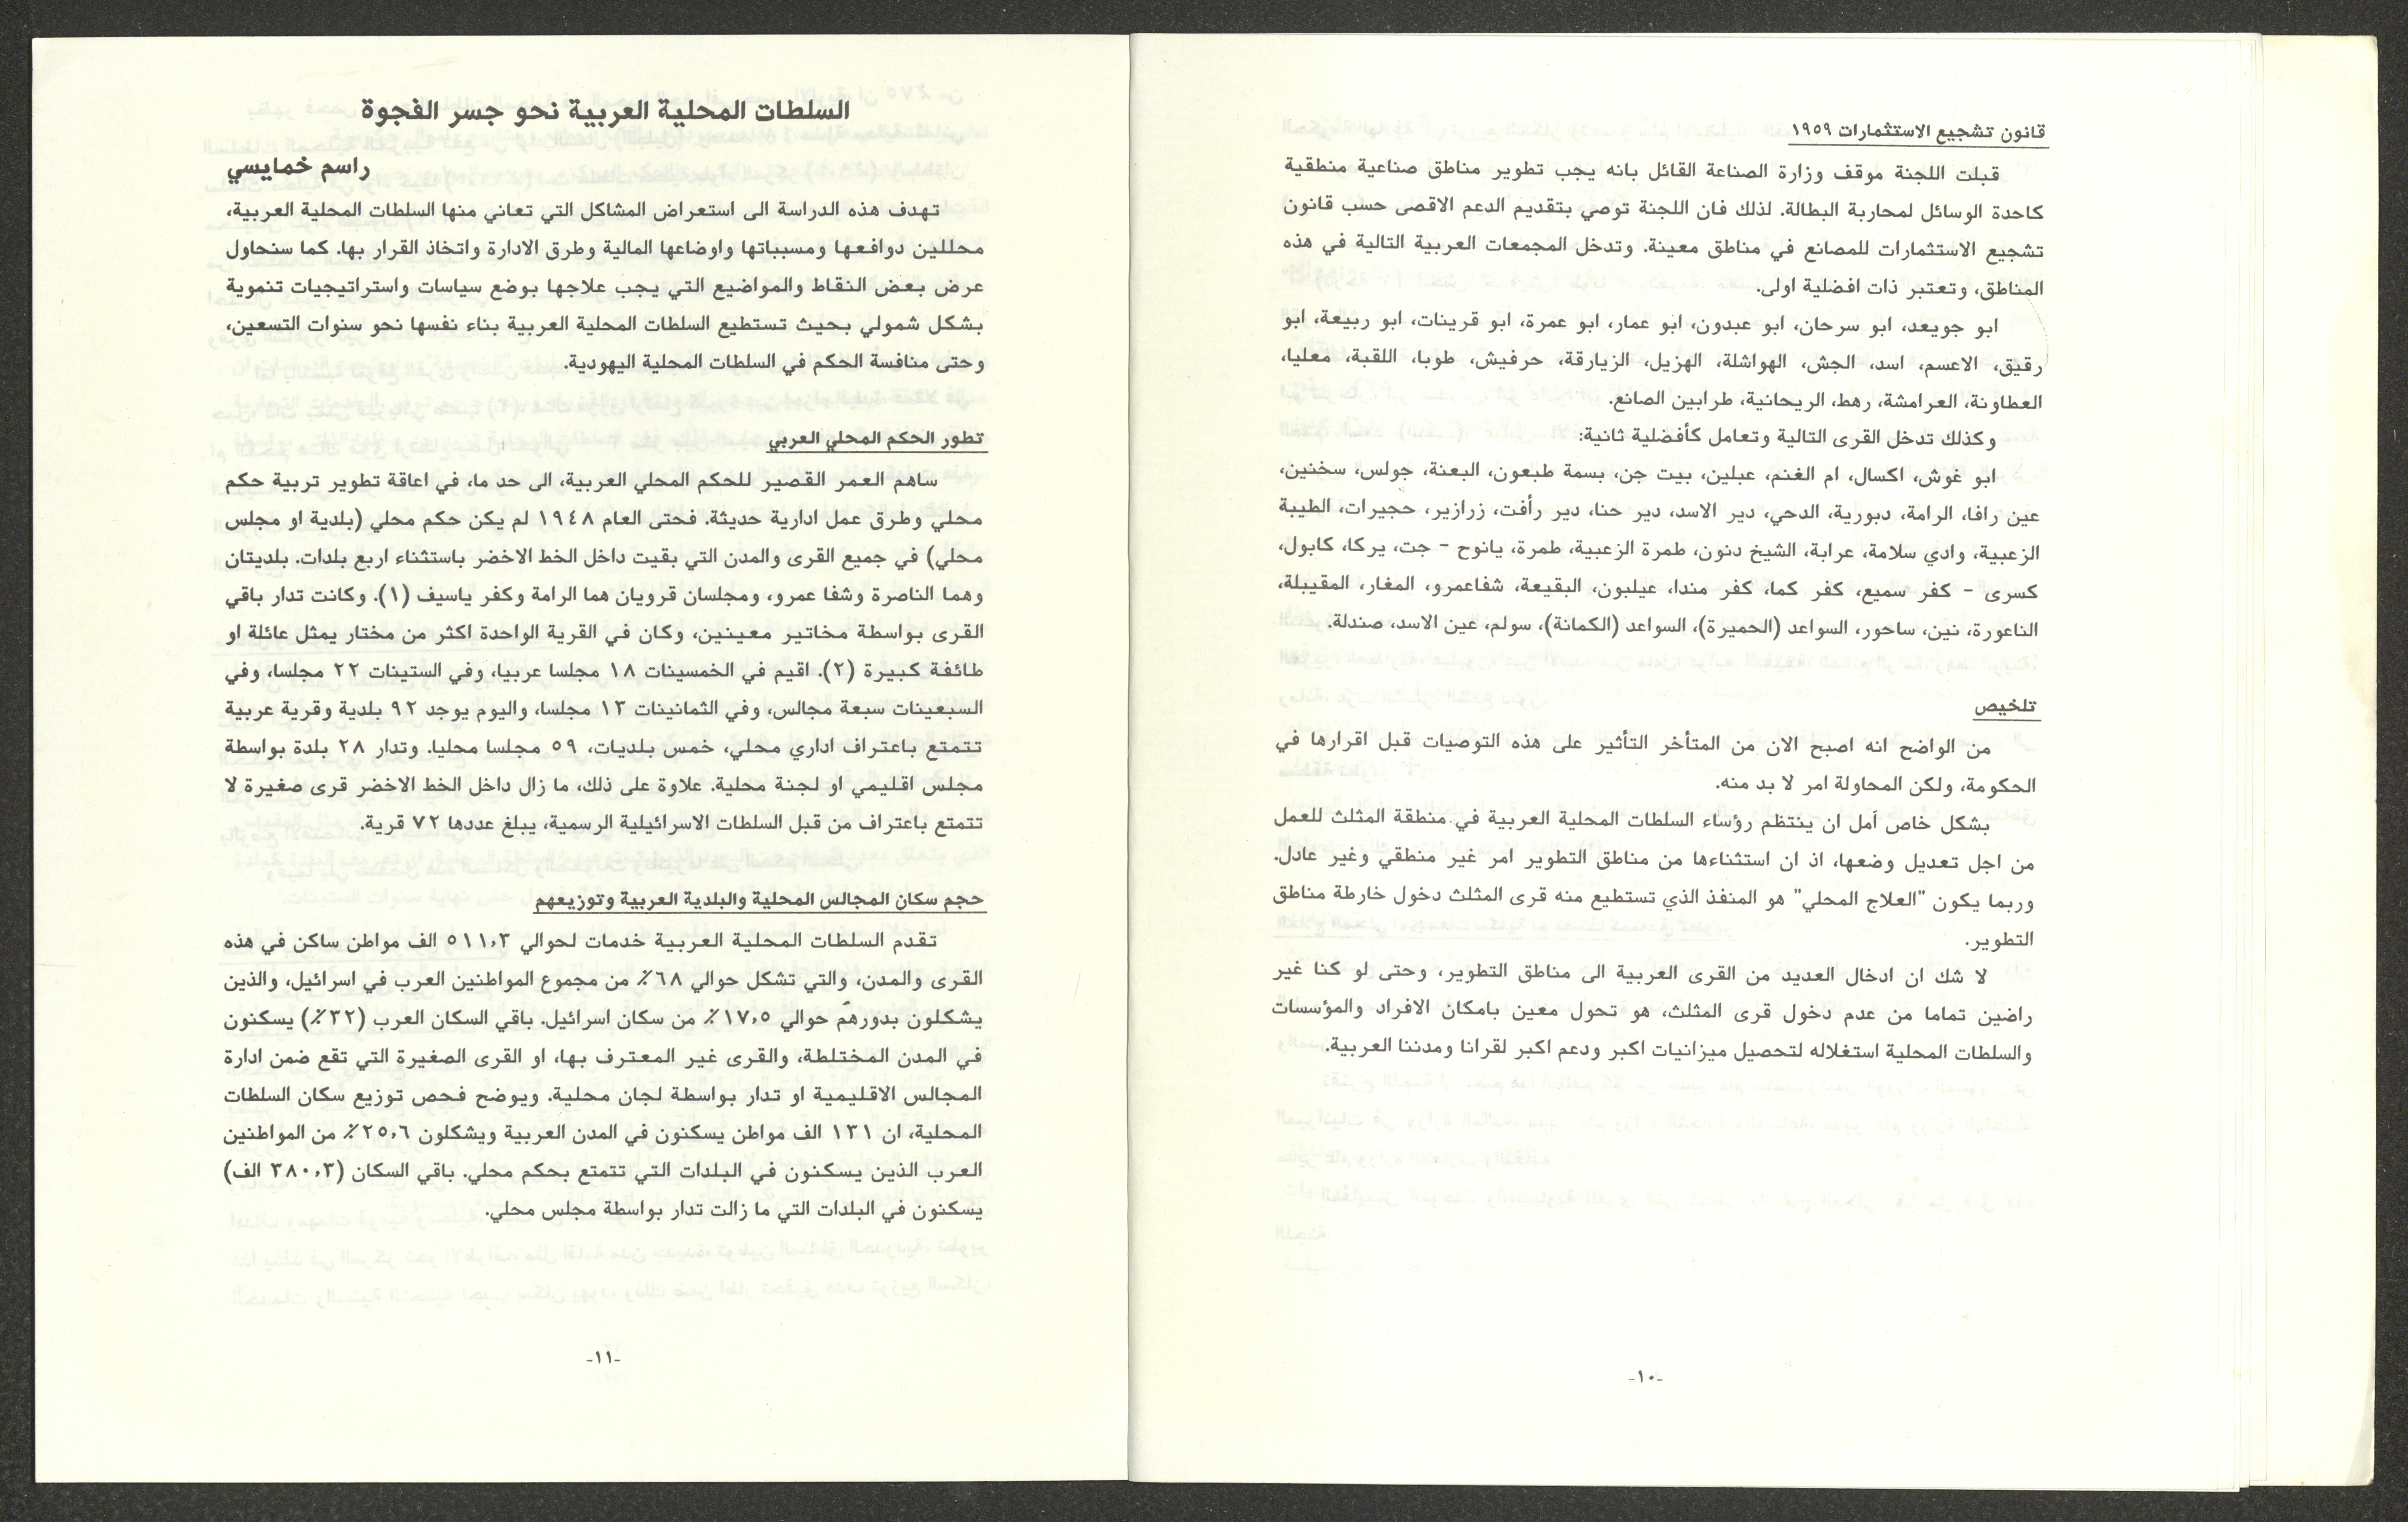 قانون تشجيع الاستثمارات ١٩٥٩
قبلت اللجنة موقف وزارة الصناعة القائل بانه يجب تطوير مناطق صناعية منطقية
كاحدة الوسائل لمحاربة البطالة. لذلك فان اللجنة توصي بتقديم الدعم الاقصى حسب قانون
تشجيع الاستثمارات للمصانع في مناطق معينة. وتدخل المجمعات العربية التالية في هذه
المناطق، وتعتبر ذات افضلية اولى.
ابو جويعد، ابو سرحان، ابو عبدون، ابو عمار، ابو عمرة، ابو قرينات، ابو ربيعة، ابو
رقيق، الاعسم، اسد، الجش، الهواشلة، الهزيل، الزيارقة، حرفيش، طوبا، اللقبة، معليا،
العطاونة، العرامشة، رهط، الريحانية، طرابين الصانع.
وكذلك تدخل القرى التالية وتعامل كأفضلية ثانية:
ابو غوش، اكسال، ام الغنم، عبلين، بيت جن، بسمة طبعون، البعنة، جولس، سخنين،
عين رافا، الرامة، دبورية، الدحي، دير الاسد، دير حنا، دير رأفت، زرازير، حجيرات، الطيبة
الزعبية، وادي سلامة، عرابة، الشيخ دنون، طمرة الزعبية، طمرة، يانوح - جت، يركا، كابول،
كسرى - كفر سميع، كفر كما، كفر مندا، عيلبون، البقيعة، شفاعمرو، المغار، المقيبلة،
الناعورة، نين، ساحور، السواعد (الحميرة)، السواعد (الكمانة)، سولم، عين الاسد، صندلة.
تلخيص
من الواضح انه اصبح الان من المتأخر التأثير على هذه التوصيات قبل اقرارها في
الحكومة، ولكن المحاولة امر لا بد منه.
بشكل خاص آمل ان ينتظم رؤساء السلطات المحلية العربية في منطقة المثلث للعمل
من اجل تعديل وضعها، اذ ان استثناءها من مناطق التطوير امر غير منطقي وغير عادل.
وربما يكون "العلاج المحلي" هو المنفذ الذي تستطيع منه قرى المثلث دخول خارطة مناطق
التطوير.
لا شك ان ادخال العديد من القرى العربية الى مناطق التطوير، وحتى لو كنا غير
راضين تماما من عدم دخول قرى المثلث، هو تحول معين بامكان الافراد والمؤسسات
والسلطات المحلية استغلاله لتحصيل ميزانيات اكبر ودعم اكبر لقرانا ومدننا العربية.
-١٠-
السلطات المحلية العربية نحو جسر الفجوة
راسم خمايسي
تهدف هذه الدراسة الى استعراض المشاكل التي تعاني منها السلطات المحلية العربية،
محللين دوافعها ومسبباتها واوضاعها المالية وطرق الادارة واتخاذ القرار بها. كما سنحاول
عرض بعض النقاط والمواضيع التي يجب علاجها بوضع سياسات واستراتيجيات تنموية
بشكل شمولي بحيث تستطيع السلطات المحلية العربية بناء نفسها نحو سنوات التسعين،
وحتى منافسة الحكم في السلطات المحلية اليهودية.
تطور الحكم المحلي العربي
ساهم العمر القصير للحكم المحلي العربية، الى حد ما، في اعاقة تطوير تربية حكم
محلي وطرق عمل ادارية حديثة. فحتى العام ١٩٤٨ لم يكن حكم محلي (بلدية او مجلس
محلي) في جميع القرى والمدن التي بقيت داخل الخط الاخضر باستثناء اربع بلدات. بلديتان
وهما الناصرة وشفا عمرو، ومجلسان قرويان هما الرامة وكفر ياسيف (١). وكانت تدار باقي
القرى بواسطة مخاتير معينين، وكان في القرية الواحدة اكثر من مختار يمثل عائلة او
طائفة كبيرة (٢). اقيم في الخمسينات ١٨ مجلسا عربيا، وفي الستينات ٢٢ مجلسا، وفي
السبعينات سبعة مجالس، وفي الثمانينات ١٣ مجلسا، واليوم يوجد ٩٢ بلدية وقرية عربية
تتمتع باعتراف اداري محلي، خمس بلديات، ٥٩ مجلسا محليا. وتدار ٢٨ بلدة بواسطة
مجلس اقليمي او لجنة محلية. علاوة على ذلك، ما زال داخل الخط الاخضر قرى صغيرة لا
تتمتع باعتراف من قبل السلطات الاسرائيلية الرسمية، يبلغ عددها ٧٢ قرية.
حجم سكان المجالس المحلية والبلدية العربية وتوزيعهم
تقدم السلطات المحلية العربية خدمات لحوالي ٥١١,٣ الف مواطن ساكن في هذه
القرى والمدن، والتي تشكل حوالي ٦٨٪ من مجموع المواطنين العرب في اسرائيل، والذين
يشكلون بدورهم حوالي ١٧,٥٪ من سكان اسرائيل. باقي السكان العرب (٣٢٪) يسكنون
في المدن المختلطة، والقرى غير المعترف بها، او القرى الصغيرة التي تقع ضمن ادارة
المجالس الاقليمية او تدار بواسطة لجان محلية. ويوضح فحص توزيع سكان السلطات
المحلية، ان ١٣١ الف مواطن يسكنون في المدن العربية ويشكلون ٢٥,٦٪ من المواطنين
العرب الذين يسكنون في البلدات التي تتمتع بحكم محلي. باقي السكان (٣٨٠,٣ الف)
يسكنون في البلدات التي ما زالت تدار بواسطة مجلس محلي.
-١١-